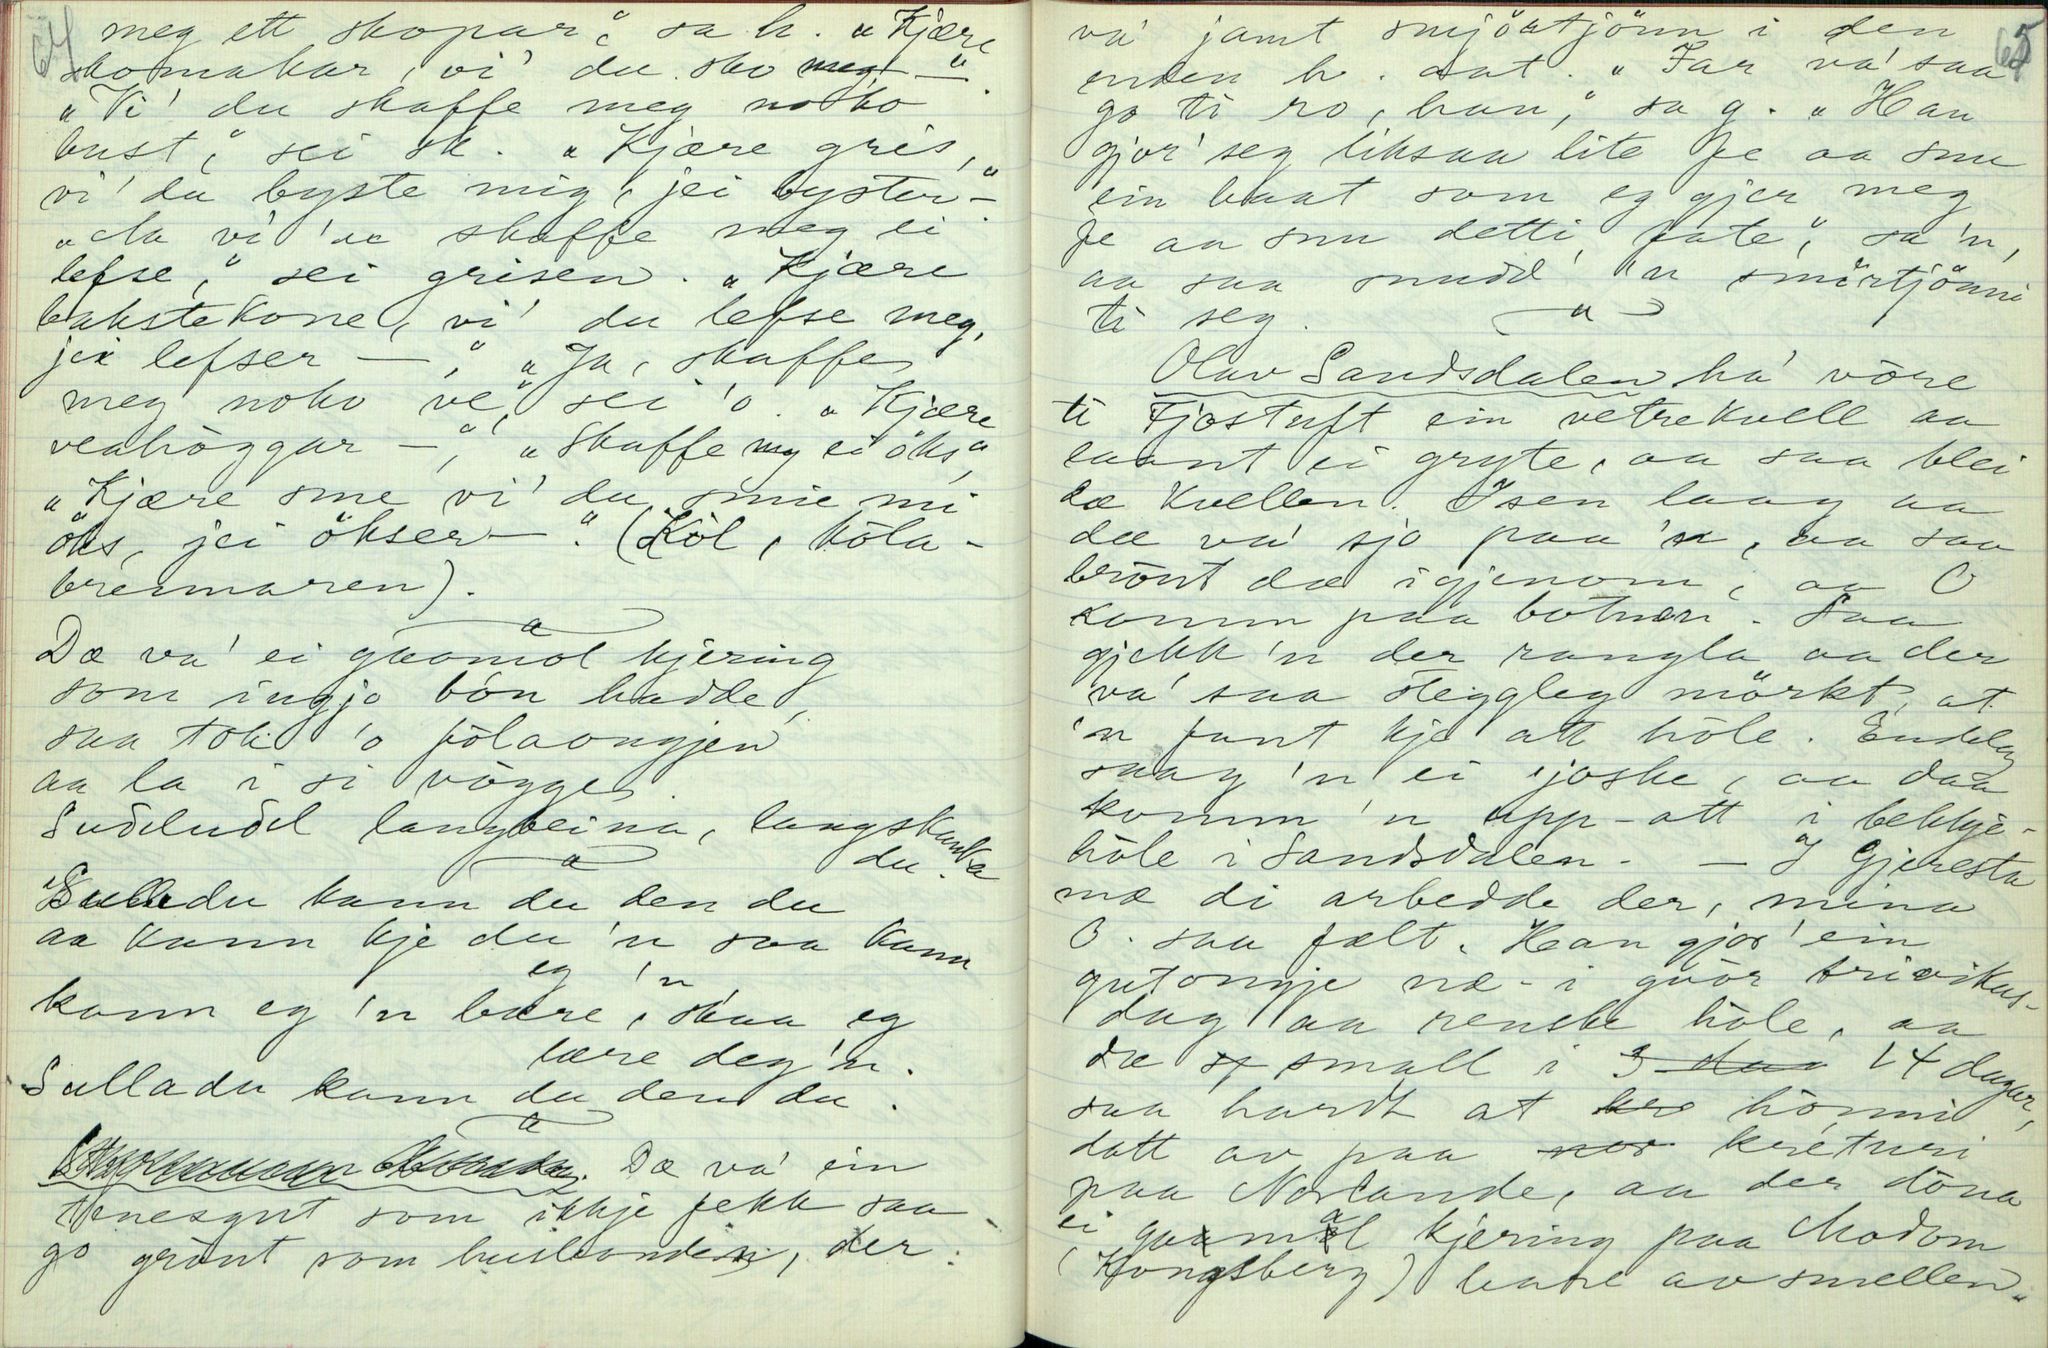 64
meg ett skopar," sa h. "Kjære
skomakar, vi' du sko meg –"
"Vi' du skaffe meg noko
bust," sei sk. "Kjære gris,
vi' du byste mig, jei byster –"
"Da vi' 'æ skaffe meg ei
lefse," sei grisen. "Kjære
bakstekone, vi' du lefse meg,
jei lefser —", "Ja, skaffe
meg noko ve", sei 'o. "Kjære
veahöggar –", "Skaffe meg ei öks"
"Kjære sme vi' du smie mi
öks, jei ökser –." (Köl, köla-
brennaren).
Dæ va' ei gaomol kjering
som ingjo bón hadde,
saa tok 'o fölaongjen
aa la i si vögge.
Sudeludel langbeina, langskanka
du.
Sulladu kann du den du
aa kann kje du 'n saa kann
eg 'n
kann eg 'n bære, skaa eg
lære deg 'n.
Sulladu kann du den du.
Dæ va' ein
tenesgut som ikkje fekk saa
go gröut som husbonden, der
65
va' jamt smjörtjönn i den
enden h. sat. "Far va' saa
go ti ro, han," sa g. "Han
gjor' seg liksaa lite fe aa snu
ein baat som eg gjer meg
fe aa snu detti fate", sa 'n,
aa saa snudd' 'n smörtjönni
ti seg.
Olav Sandsdalen ha' vöre
ti Fjostuft ein vetrekvell aa
laant ei gryte, aa saa blei
dæ kvellen. Isen laag aa
dæ va' sjo paa 'n, aa saa
brönt dæ igjenom, aa O
komm paa botnen. Saa
gjekk 'n der rangla aa der
va' saa steggleg mörkt, at
'n fant kje att höle. Endeleg
saag 'n ei joske, aa daa
komm 'n upp-att i bekkje-
höle i Sandsdalen. — I Gjeresta
mæ di arbedde der, mina
O. saa fælt. Han gjor' ein
gutongje næ-i gvor trivikus-
dag aa renske höle, aa
dæ sp small i 3 daa 14 dagar,
saa hardt at hro hónni
datt av paa nor kreturi
paa Norlande, aa der döna
ei gaamal kjering paa Modom
(Kongsberg) bare av smellen.